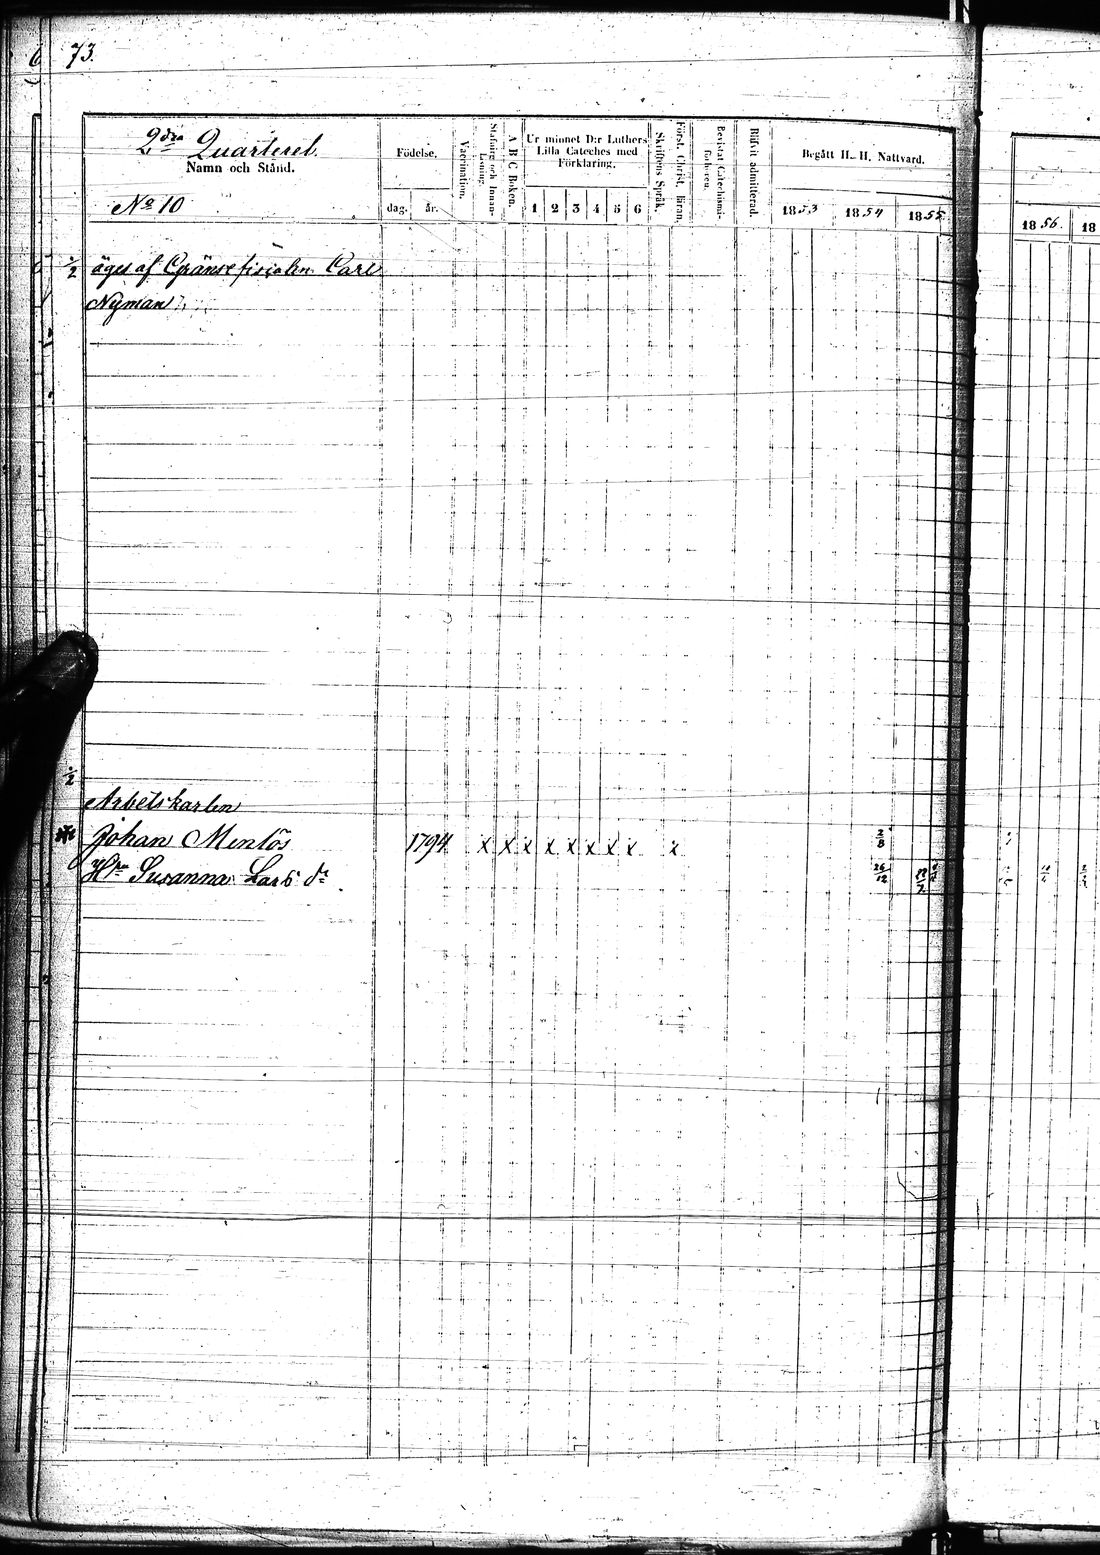 73.
2dra Quarteret.
Namn och Stånd.
No 10
Födelse,
dag. år.
Vaccination.
Stafning och Innan-
Läsning.
A B C Boken.
Ur minnet D:r Luthers
Lilla Cateches med
Förklaring.
1 2 3 4 5 6
Skriftens Språk.
Först. Christ. läran.
Bevistat Catechismi-
förhören.
Blifvit admitterad.
Begått H. H. Nattvard.
1853 1854 1855
1856 18
1/2 äges af Gränsefiscalen Carl
Nyman
1/2
Arbetskarlen
Johan Menlös 1794 x x x x x x x x x 2/8
H:u Susanna Lars d:r 26/12